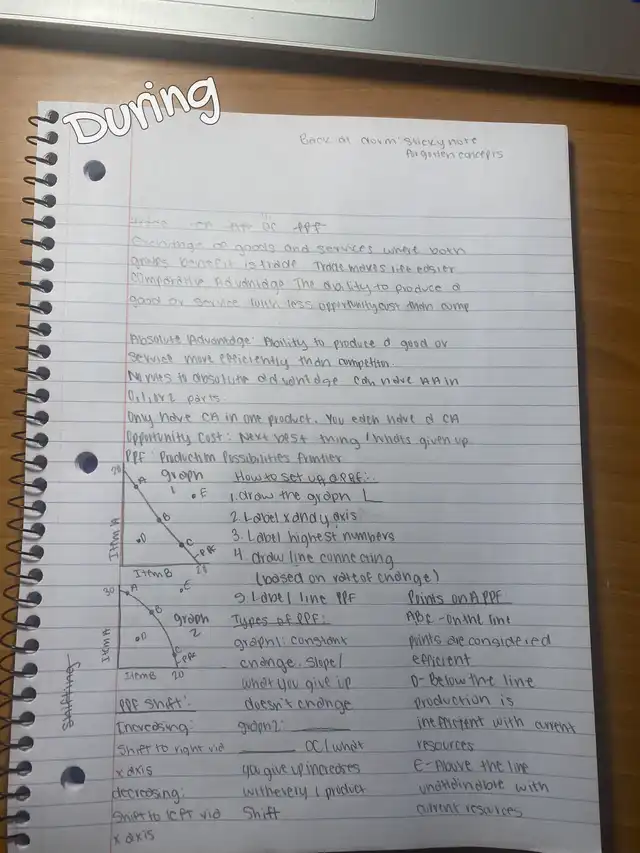 During
Back at dorm: sticky note
forgotten concepts
OC PPF
Exchange of goods and services where both
parties benefit is trade Trade makes life easier
Comparative Advantage The ability to produce a
good or service with less opportunity cost than comp
Absolute Advantage: Ability to produce a good or
service more efficiently than competitor.
to absolute advantage can have AA in
0, 1, or 2 parts
Only have CA in one product. You each have a CA
Opportunity Cost: Next best thing / whats given up
PPF: Production Possibilities Frontier
20
A
graph
1
E
B
D
C
PPF
Item A
Item B
How to set up a PPF:
1. draw the graph
2. Label x and y axis
3. Label highest numbers
4. draw line connecting
(based on rate of change)
5. Label line PPF
30
A
E
B
graph
2
D
C
PPF
Item A
Item B 20
Types of PPF:
graph 1: constant
change. Slope /
what you give up
doesn't change
graph 2:
OC / what
you give up increases
with every 1 product
Shift
Points on A PPF
ABC - on the line
points are considered
efficient
D - Below the line
production is
inefficient with current
resources
E - Above the line
unattainable with
current resources
Shifting
PPF Shift:
Increasing:
Shift to right via
x axis
decreasing:
Shift to left via
x axis